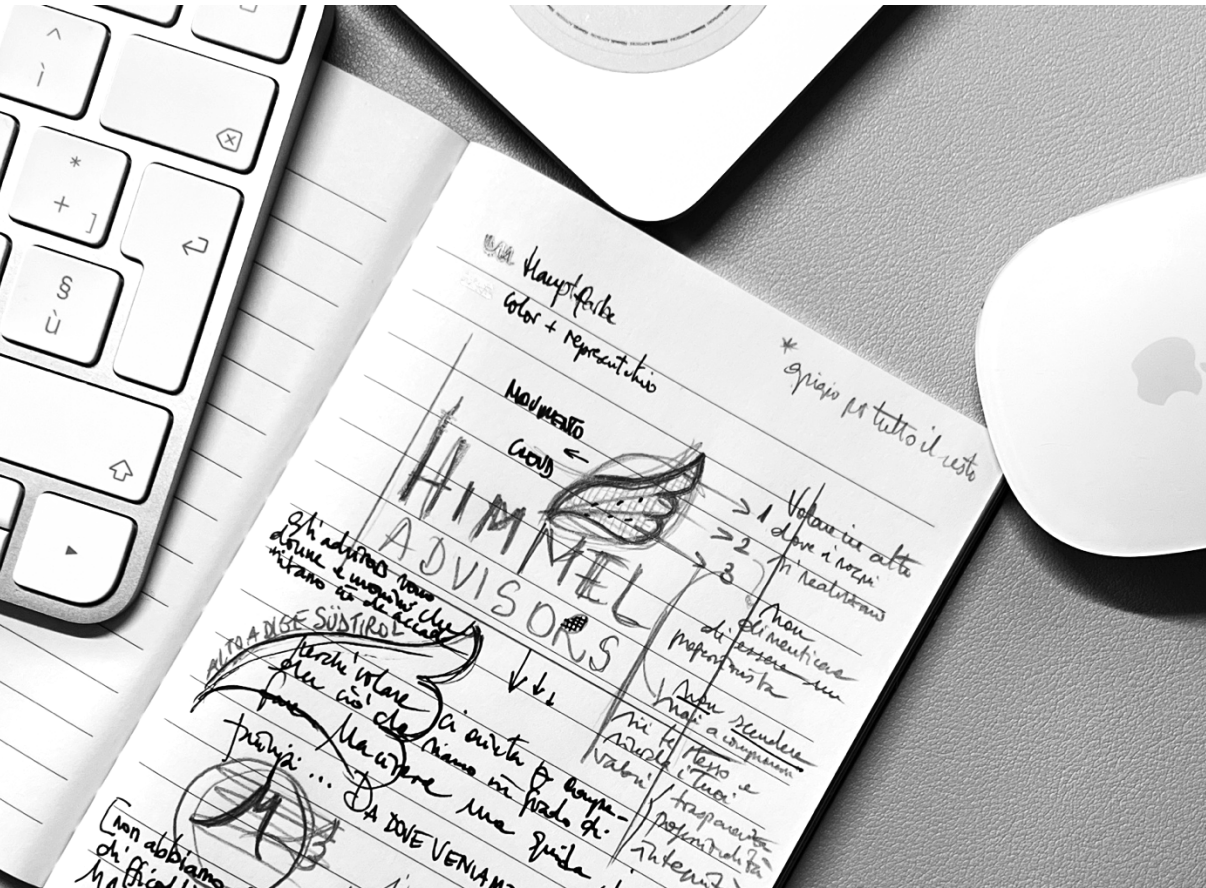 ^
ì
*
+ ]
§
ù
Hauptfarbe
color + representativo
*
grigio per tutto il resto
MOVIMENTO
CLOUD
HIMMEL
ADVISORS
> 1
> 2
> 3
Volare in alto
dove i sogni
si realizzano
Non
dimenticare
di essere un
professionista
Non scendere
mai a compromessi
te stesso e
i tuoi
valori
trasparenza
professionalità
integrità
gli advisors sono
donne e uomini che
ALTO ADIGE SÜDTIROL
Perché volare ci aiuta a
ciò che siamo in grado di
fare. Ma avere una guida
DA DOVE VENIAMO
[non abbiamo